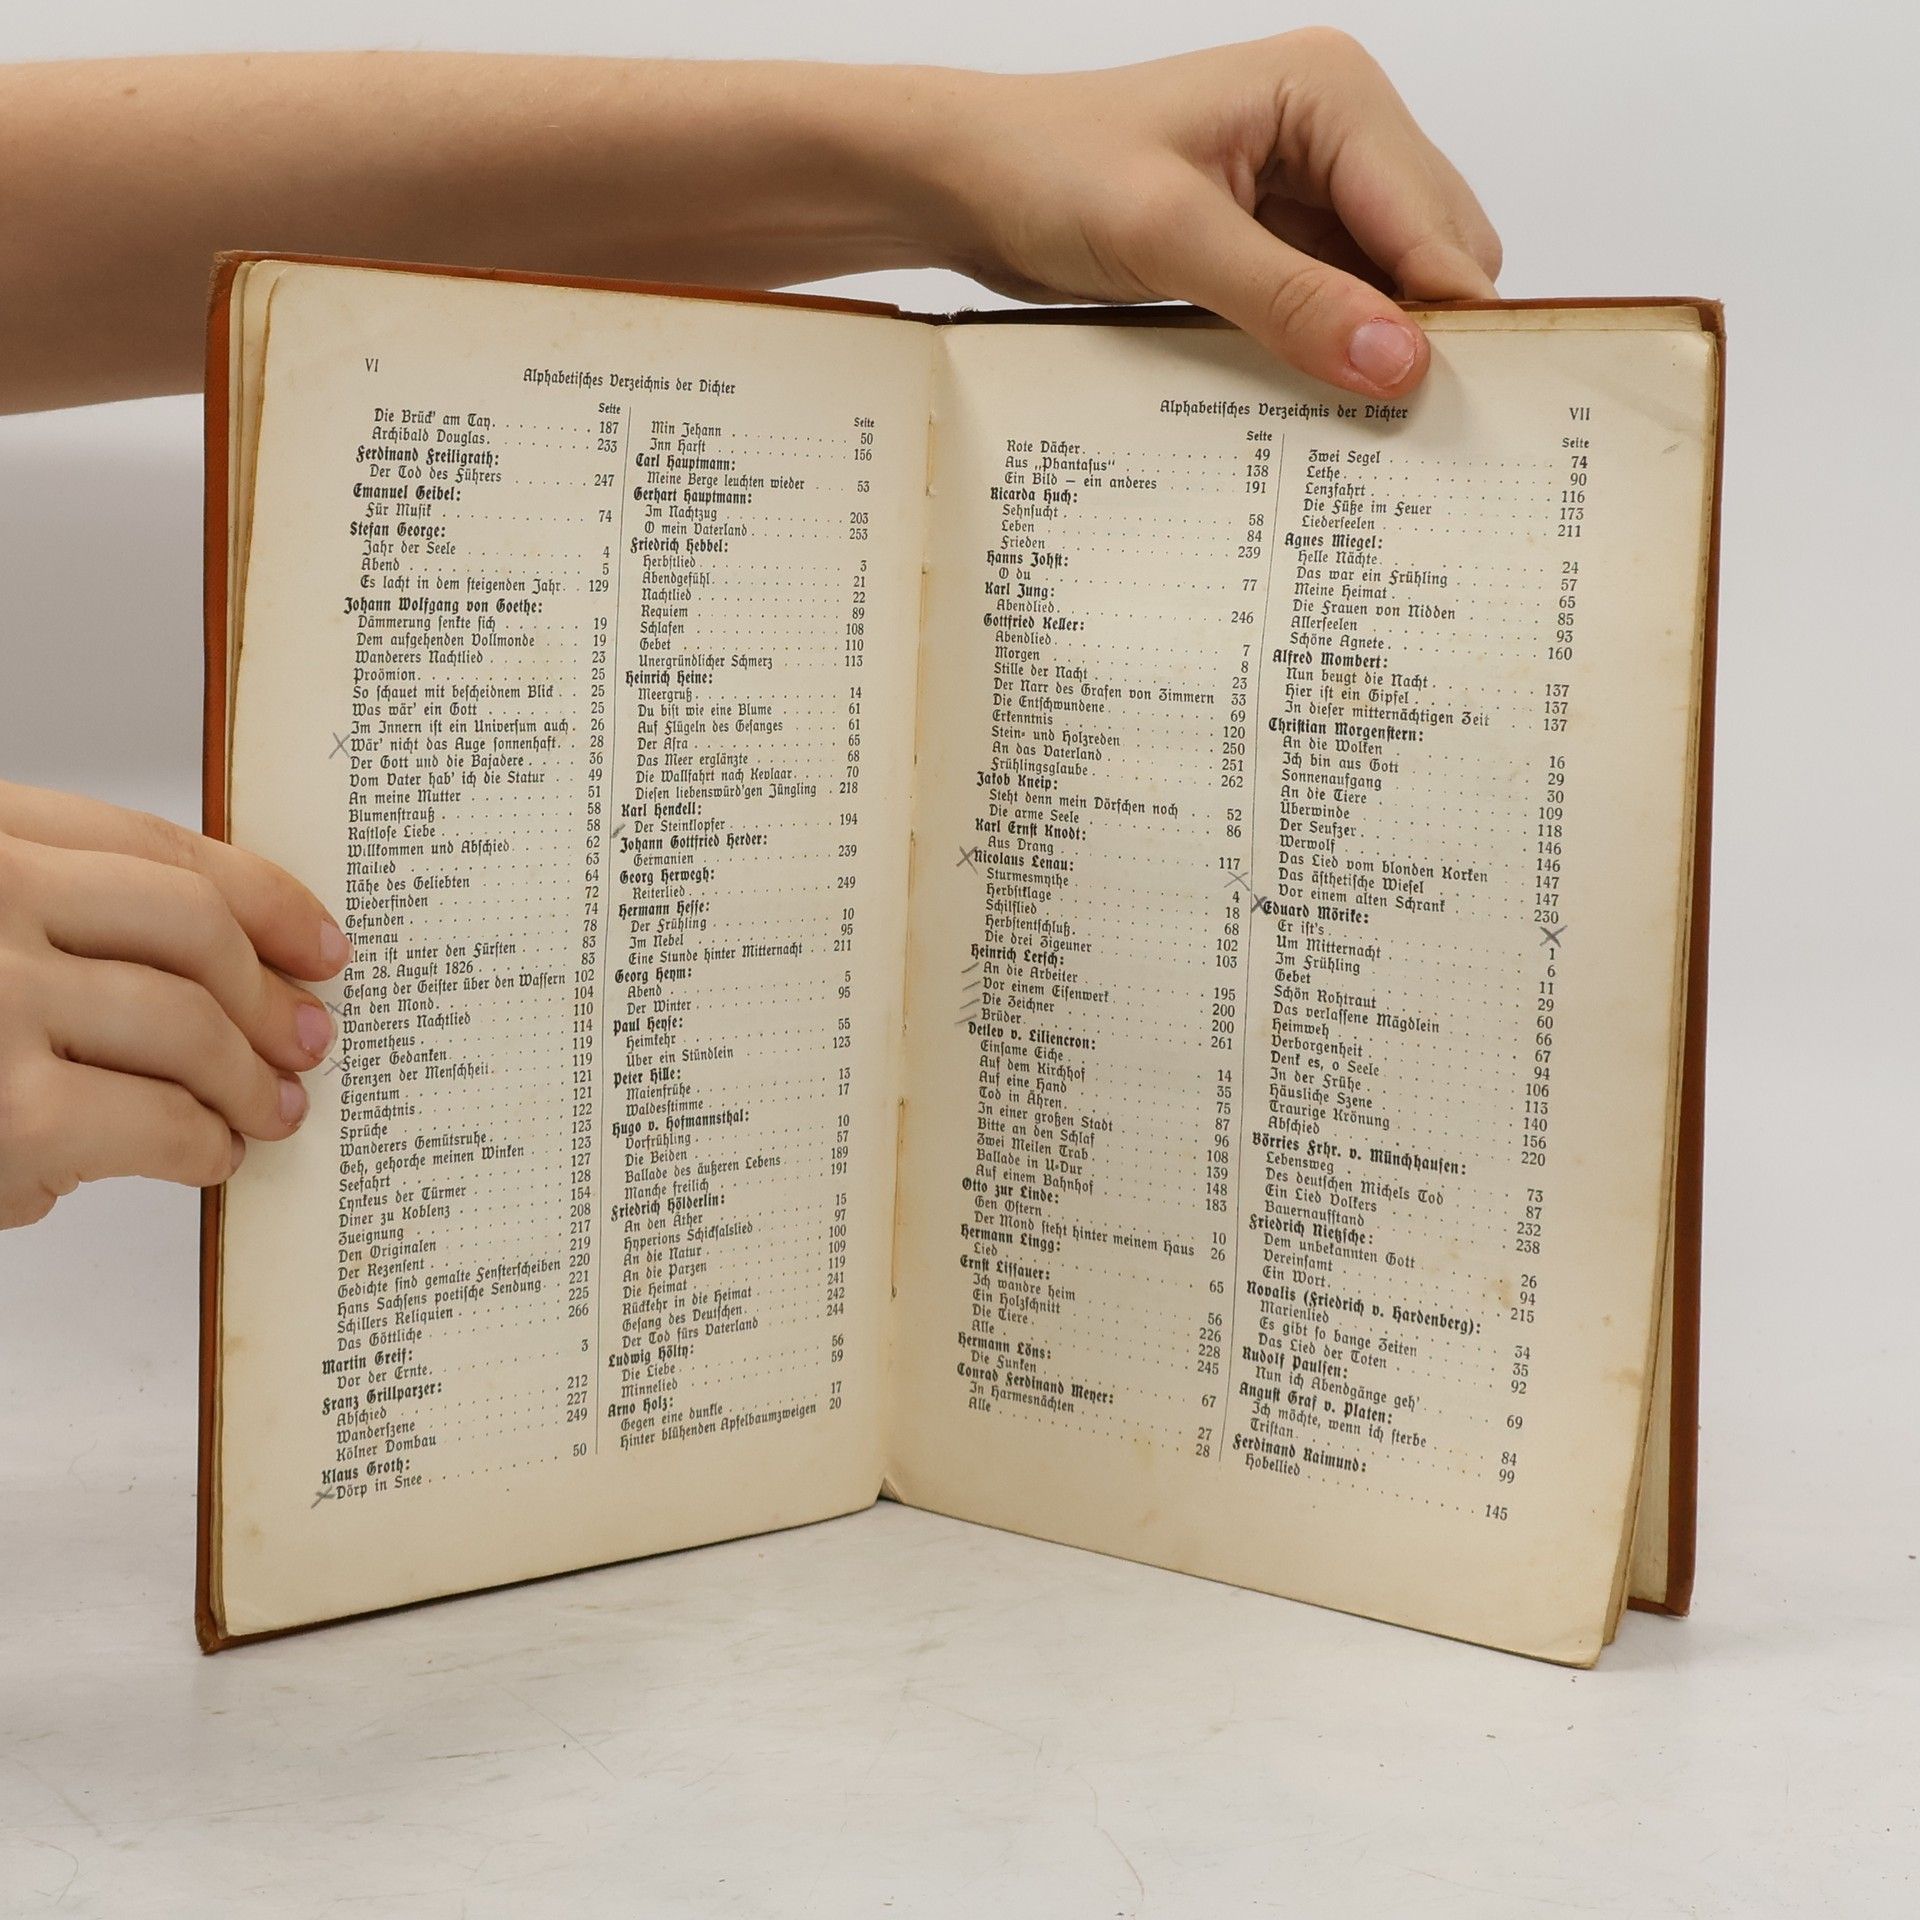 VI
Alphabetisches Verzeichnis der Dichter
Seite
Die Brück' am Tay. 187
Archibald Douglas. 233
Ferdinand Freiligrath:
Der Tod des Führers 247
Emanuel Geibel:
Für Musik 74
Stefan George:
Jahr der Seele 4
Abend 5
Es lacht in dem steigenden Jahr. 129
Johann Wolfgang von Goethe:
Dämmerung senkte sich 19
Dem aufgehenden Vollmonde 19
Wanderers Nachtlied 23
Proömion. 25
So schauet mit bescheidnem Blick 25
Was wär' ein Gott 25
Im Innern ist ein Universum auch. 26
Wär' nicht das Auge sonnenhaft. 28
Der Gott und die Bajadere 36
Vom Vater hab' ich die Statur 49
An meine Mutter 51
Blumenstrauß 58
Rastlose Liebe 58
Willkommen und Abschied. 62
Mailied 63
Nähe des Geliebten 64
Wiederfinden 72
Gefunden 74
Ilmenau 78
Klein ist unter den Fürsten 83
Am 28. August 1826 83
Gesang der Geister über den Wassern 102
An den Mond. 104
Wanderers Nachtlied 110
Prometheus 114
Feiger Gedanken. 119
Grenzen der Menschheit. 119
Eigentum 121
Vermächtnis. 121
Sprüche 122
Wanderers Gemütsruhe. 123
Geh, gehorche meinen Winken 123
Seefahrt 127
Lynkeus der Türmer 128
Diner zu Koblenz 154
Zueignung 208
Den Originalen 217
Der Rezensent 219
Gedichte sind gemalte Fensterscheiben 220
Hans Sachsens poetische Sendung. 221
Schillers Reliquien 225
Das Göttliche 266
Martin Greif:
Vor der Ernte. 3
Franz Grillparzer:
Abschied 212
Wanderszene 227
Kölner Dombau 249
Klaus Groth:
Dörp in Snee 50
Seite
Min Jehann 50
Inn Harst 156
Carl Hauptmann:
Meine Berge leuchten wieder 53
Gerhart Hauptmann:
Im Nachtzug 203
O mein Vaterland 253
Friedrich Hebbel:
Herbstlied 3
Abendgefühl. 21
Nachtlied 22
Requiem 89
Schlafen 108
Gebet 110
Unergründlicher Schmerz 113
Heinrich Heine:
Meergruß. 14
Du bist wie eine Blume 61
Auf Flügeln des Gesanges 61
Der Asra 65
Das Meer erglänzte 68
Die Wallfahrt nach Kevlaar. 70
Diesen liebenswürd'gen Jüngling 218
Karl Henckell:
Der Steinklopfer 194
Johann Gottfried Herder:
Germanien 239
Georg Herwegh:
Reiterlied 249
Hermann Hesse:
Der Frühling 10
Im Nebel 95
Eine Stunde hinter Mitternacht 211
Georg Heym:
Abend 5
Der Winter 95
Paul Heyse:
Heimkehr 55
Über ein Stündlein 123
Peter Hille:
Maienfrühe 13
Waldesstimme 17
Hugo v. Hofmannsthal:
Vorfrühling 10
Die Beiden 57
Ballade des äußeren Lebens 189
Manche freilich 191
Friedrich Hölderlin:
An den Äther 15
Hyperions Schicksalslied 97
An die Natur 100
An die Parzen 109
Die Heimat 119
Rückkehr in die Heimat 241
Gesang des Deutschen. 242
Der Tod fürs Vaterland 244
Ludwig Hölty:
Die Liebe 56
Minnelied 59
Arno Holz:
Gegen eine dunkle 17
Hinter blühenden Apfelbaumzweigen 20
Alphabetisches Verzeichnis der Dichter
VII
Seite
Rote Dächer. 49
Aus „Phantasus“ 138
Ein Bild — ein anderes 191
Ricarda Huch:
Sehnsucht 58
Leben 84
Frieden 239
Hanns Johst:
O du 77
Karl Jung:
Abendlied. 246
Gottfried Keller:
Abendlied 7
Morgen 8
Stille der Nacht 23
Der Narr des Grafen von Zimmern 33
Die Entschwundene. 69
Erkenntnis 120
Stein- und Holzreden 250
An das Vaterland 251
Frühlingsglaube. 262
Jakob Kneip:
Steht denn mein Dörfchen noch 52
Die arme Seele 86
Karl Ernst Knodt:
Aus Drang 117
Nicolaus Lenau:
Sturmesmythe 4
Herbstklage 18
Schilflied 68
Herbstentschluß. 102
Die drei Zigeuner 103
Heinrich Lersch:
An die Arbeiter 195
Vor einem Eisenwerk 200
Die Zeichner 200
Brüder 261
Detlev v. Liliencron:
Einsame Eiche 14
Auf dem Kirchhof 35
Auf eine Hand 75
Tod in Ähren. 87
In einer großen Stadt 96
Bitte an den Schlaf 108
Zwei Meilen Trab. 139
Ballade in U-Dur 148
Auf einem Bahnhof 183
Otto zur Linde:
Gen Ostern 10
Der Mond steht hinter meinem Haus 26
Hermann Lingg:
Lied 65
Ernst Lissauer:
Ich wandre heim 56
Ein Holzschnitt 226
Die Tiere. 228
Alle 245
Hermann Löns:
Die Funken 67
Conrad Ferdinand Meyer:
In Harmesnächten 27
Alle 28
Seite
Zwei Segel 74
Lethe. 90
Lenzfahrt 116
Die Füße im Feuer 173
Liederseelen 211
Agnes Miegel:
Helle Nächte. 24
Das war ein Frühling 57
Meine Heimat 65
Die Frauen von Nidden 85
Allerseelen 93
Schöne Agnete. 160
Alfred Mombert:
Nun beugt die Nacht 137
Hier ist ein Gipfel. 137
In dieser mitternächtigen Zeit 137
Christian Morgenstern:
An die Wolken 16
Ich bin aus Gott 29
Sonnenaufgang 30
An die Tiere 109
Überwinde 118
Der Seufzer. 146
Werwolf 146
Das Lied vom blonden Korken 147
Das ästhetische Wiesel 147
Vor einem alten Schrank 230
Eduard Mörike:
Er ist's. 1
Um Mitternacht 6
Im Frühling 11
Gebet 29
Schön Rohtraut 60
Das verlassene Mägdlein 66
Heimweh 67
Verborgenheit 94
Denk es, o Seele 106
In der Frühe 113
Häusliche Szene 140
Traurige Krönung 156
Abschied 220
Börries Frhr. v. Münchhausen:
Lebensweg 73
Des deutschen Michels Tod 87
Ein Lied Volkers 232
Bauernaufstand 238
Friedrich Nietzsche:
Dem unbekannten Gott 26
Vereinsamt 94
Ein Wort. 215
Novalis (Friedrich v. Hardenberg):
Marienlied 34
Es gibt so bange Zeiten 35
Das Lied der Toten 92
Rudolf Paulsen:
Nun ich Abendgänge geh' 69
August Graf v. Platen:
Ich möchte, wenn ich sterbe 84
Tristan. 99
Ferdinand Raimund:
Hobellied 145